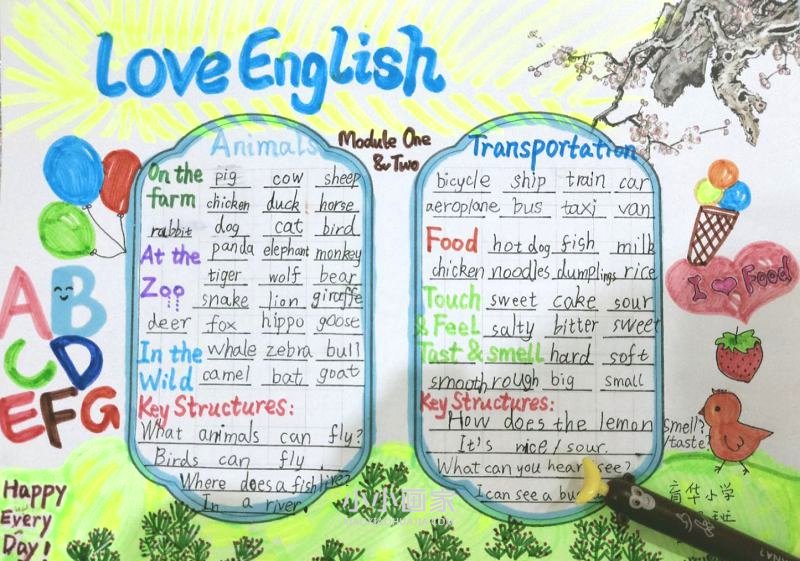 Love English
Module One
& Two
Animals
On the pig cow sheep
farm chicken duck horse
rabbit dog cat bird
At the panda elephant monkey
Zoo tiger wolf bear
snake lion giraffe
deer fox hippo goose
In the whale zebra bull
Wild camel bat goat
Key Structures:
What animals can fly?
Birds can fly
Where does a fish live?
In a river.
Transportation
bicycle ship train car
aeroplane bus taxi van
Food hot dog fish milk
chicken noodles dumplings rice
Touch sweet cake sour
& Feel salty bitter sweet
Tast & smell hard soft
smooth rough big small
Key Structures:
How does the lemon smell?
/taste?
It's nice/sour.
What can you hear/see?
I can see a
A B
C D
E F G
I Food
Happy
Every
Day!
育华小学
班
小小画家